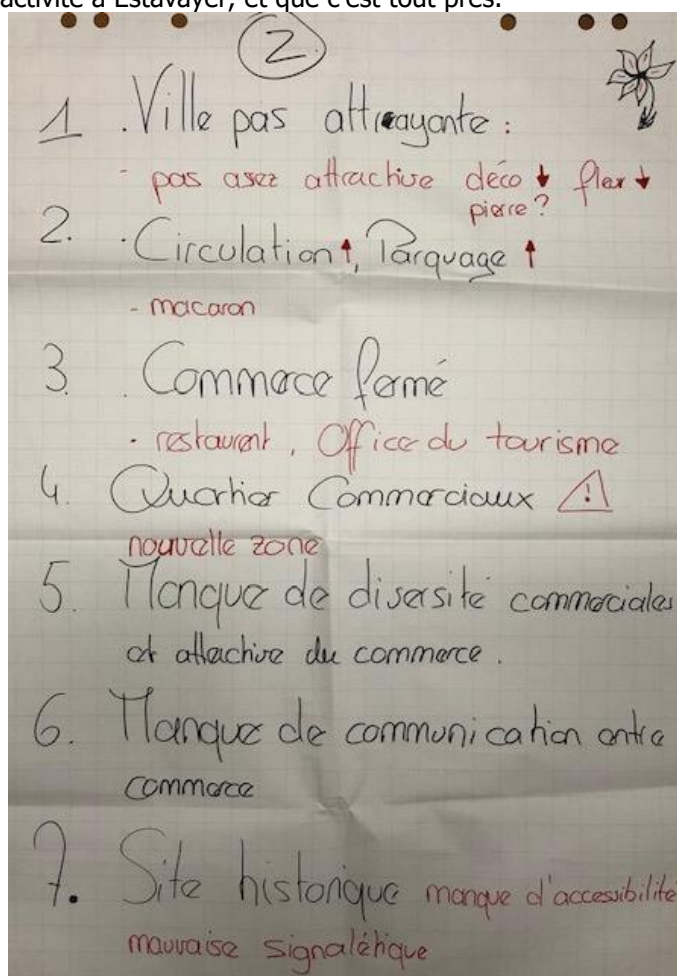 activité à Estavayer, et que c'est tout près.
2
1 . Ville pas attrayante :
- pas asez attractive déco ↓ fleur ↓
pierre ?
2. . Circulation ↑, Parquage ↑
- macaron
3. . Commerce fermé
. restaurent , Office du tourisme
4. Quartier Commerciaux ⚠
nouvelle zone
5. Manque de diversité commerciales
et attactive du commerce .
6. Manque de communication entre
commerce
7. Site historique manque d'accessibilité
mauvaise signalétique